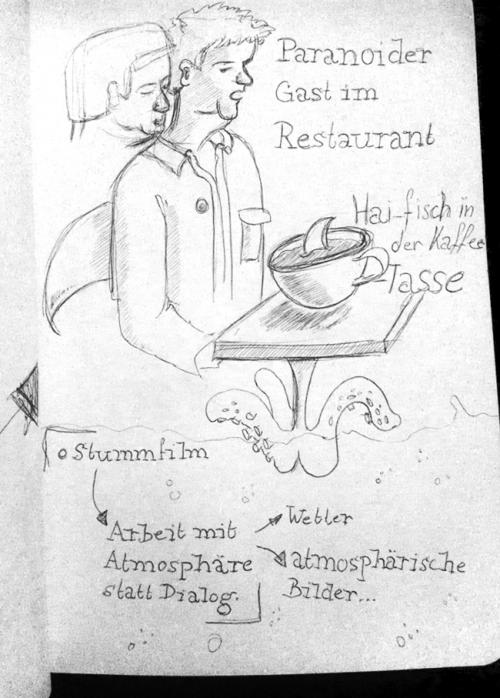 Paranoider
Gast im
Restaurant
Hai-fisch in
der Kaffee
-Tasse
Stummfilm
Arbeit mit
Atmosphäre
statt Dialog.
Wetter
atmosphärische
Bilder...